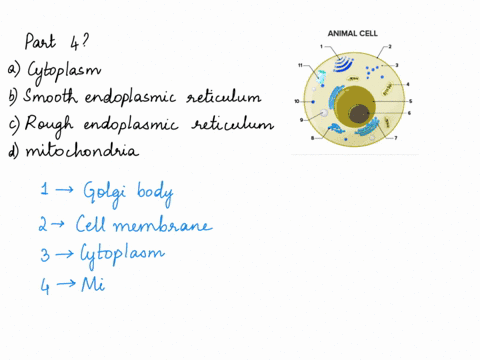 Part 4?
a) Cytoplasm
b) Smooth endoplasmic reticulum
c) Rough endoplasmic reticulum
d) mitochondria
1 → Golgi body
2 → Cell membrane
3 → Cytoplasm
4 → Mi
ANIMAL CELL
1
2
11
3
4
10
5
9
6
8
7